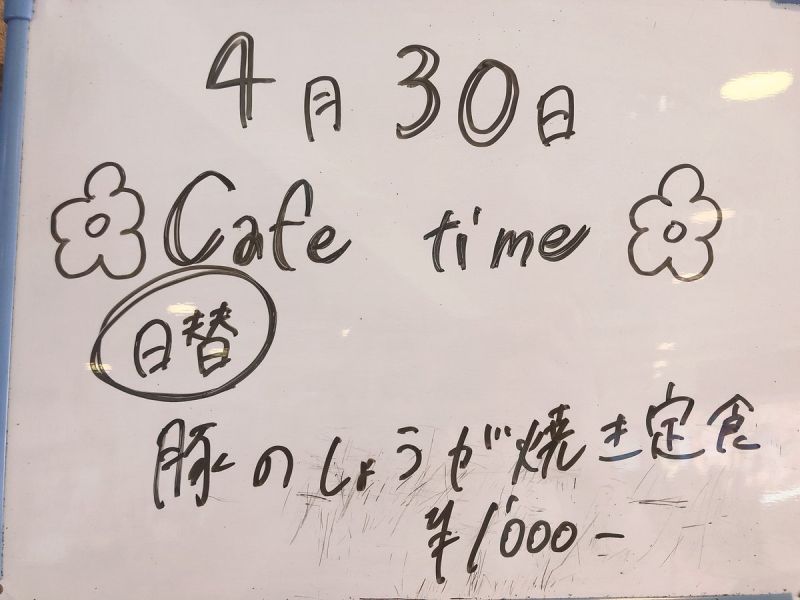 4月30日
Cafe time
日替
豚のしょうが焼き定食
¥1'000-